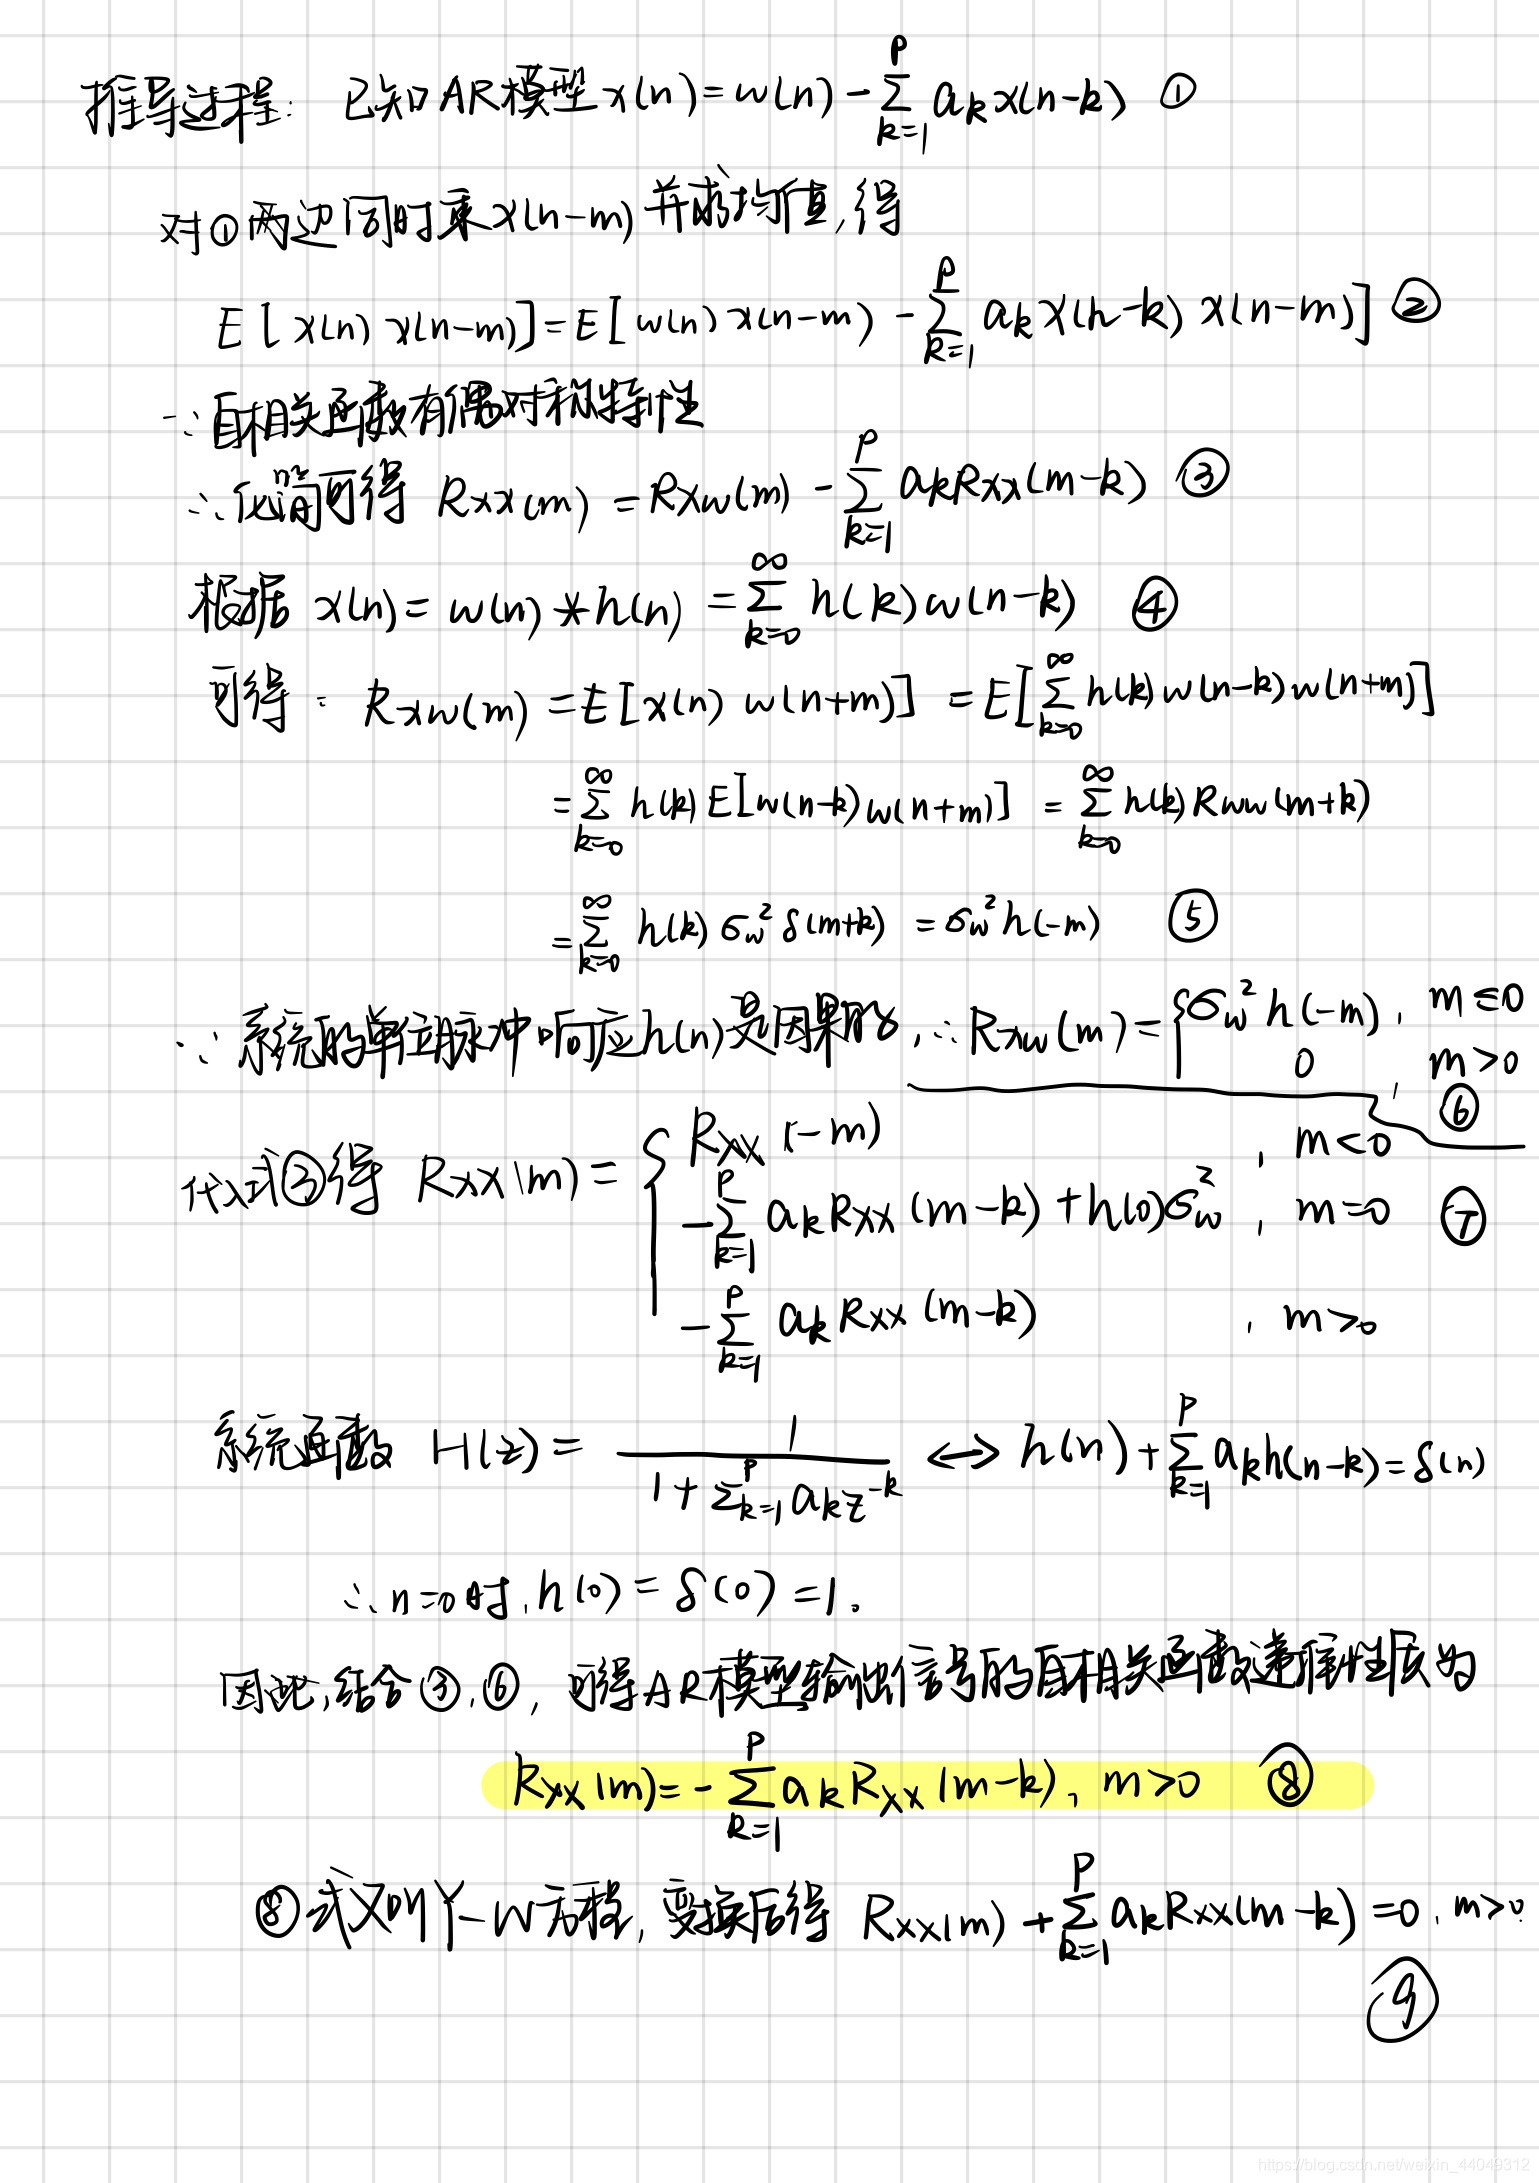 推导过程: 已知AR模型 x(n)=w(n)-∑_{k=1}^{p} a_k x(n-k) ①
对①两边同时乘x(n-m)并求均值,得
E[x(n) x(n-m)]=E[w(n) x(n-m) -∑_{k=1}^{p} a_k x(n-k) x(n-m)] ②
∵自相关函数有偶对称特性
∴化简可得 Rxx(m) = Rxw(m) -∑_{k=1}^{p} a_k Rxx(m-k) ③
根据 x(n)= w(n)*h(n) =∑_{k=0}^{∞} h(k)w(n-k) ④
可得: Rxw(m) =E[x(n) w(n+m)] =E[∑_{k=0}^{∞} h(k)w(n-k)w(n+m)]
=∑_{k=0}^{∞} h(k)E[w(n-k)w(n+m)] =∑_{k=0}^{∞} h(k)Rww(m+k)
=∑_{k=0}^{∞} h(k)σ_w^2 δ(m+k) =σ_w^2 h(-m) ⑤
∵系统的单位脉冲响应h(n)是因果的,∴Rxw(m)={σ_w^2 h(-m), m≤0
0, m>0 ⑥
代入式③得 Rxx(m)={Rxx(-m), m<0
-∑_{k=1}^{p} a_k Rxx(m-k)+h(0)σ_w^2, m=0 ⑦
-∑_{k=1}^{p} a_k Rxx(m-k), m>0
系统函数 H(z)= 1/(1+∑_{k=1}^{p} a_k z^{-k}) ↔ h(n)+∑_{k=1}^{p} a_k h(n-k)=δ(n)
∴n=0时,h(0)=δ(0)=1.
因此,结合③,⑥,可得AR模型输出信号的自相关函数递推性质为
Rxx(m)=-∑_{k=1}^{p} a_k Rxx(m-k), m>0 ⑧
⑧式又叫Y-W方程,变换后得 Rxx(m)+∑_{k=1}^{p} a_k Rxx(m-k)=0, m>0
⑨
https://blog.csdn.net/weixin_44049312